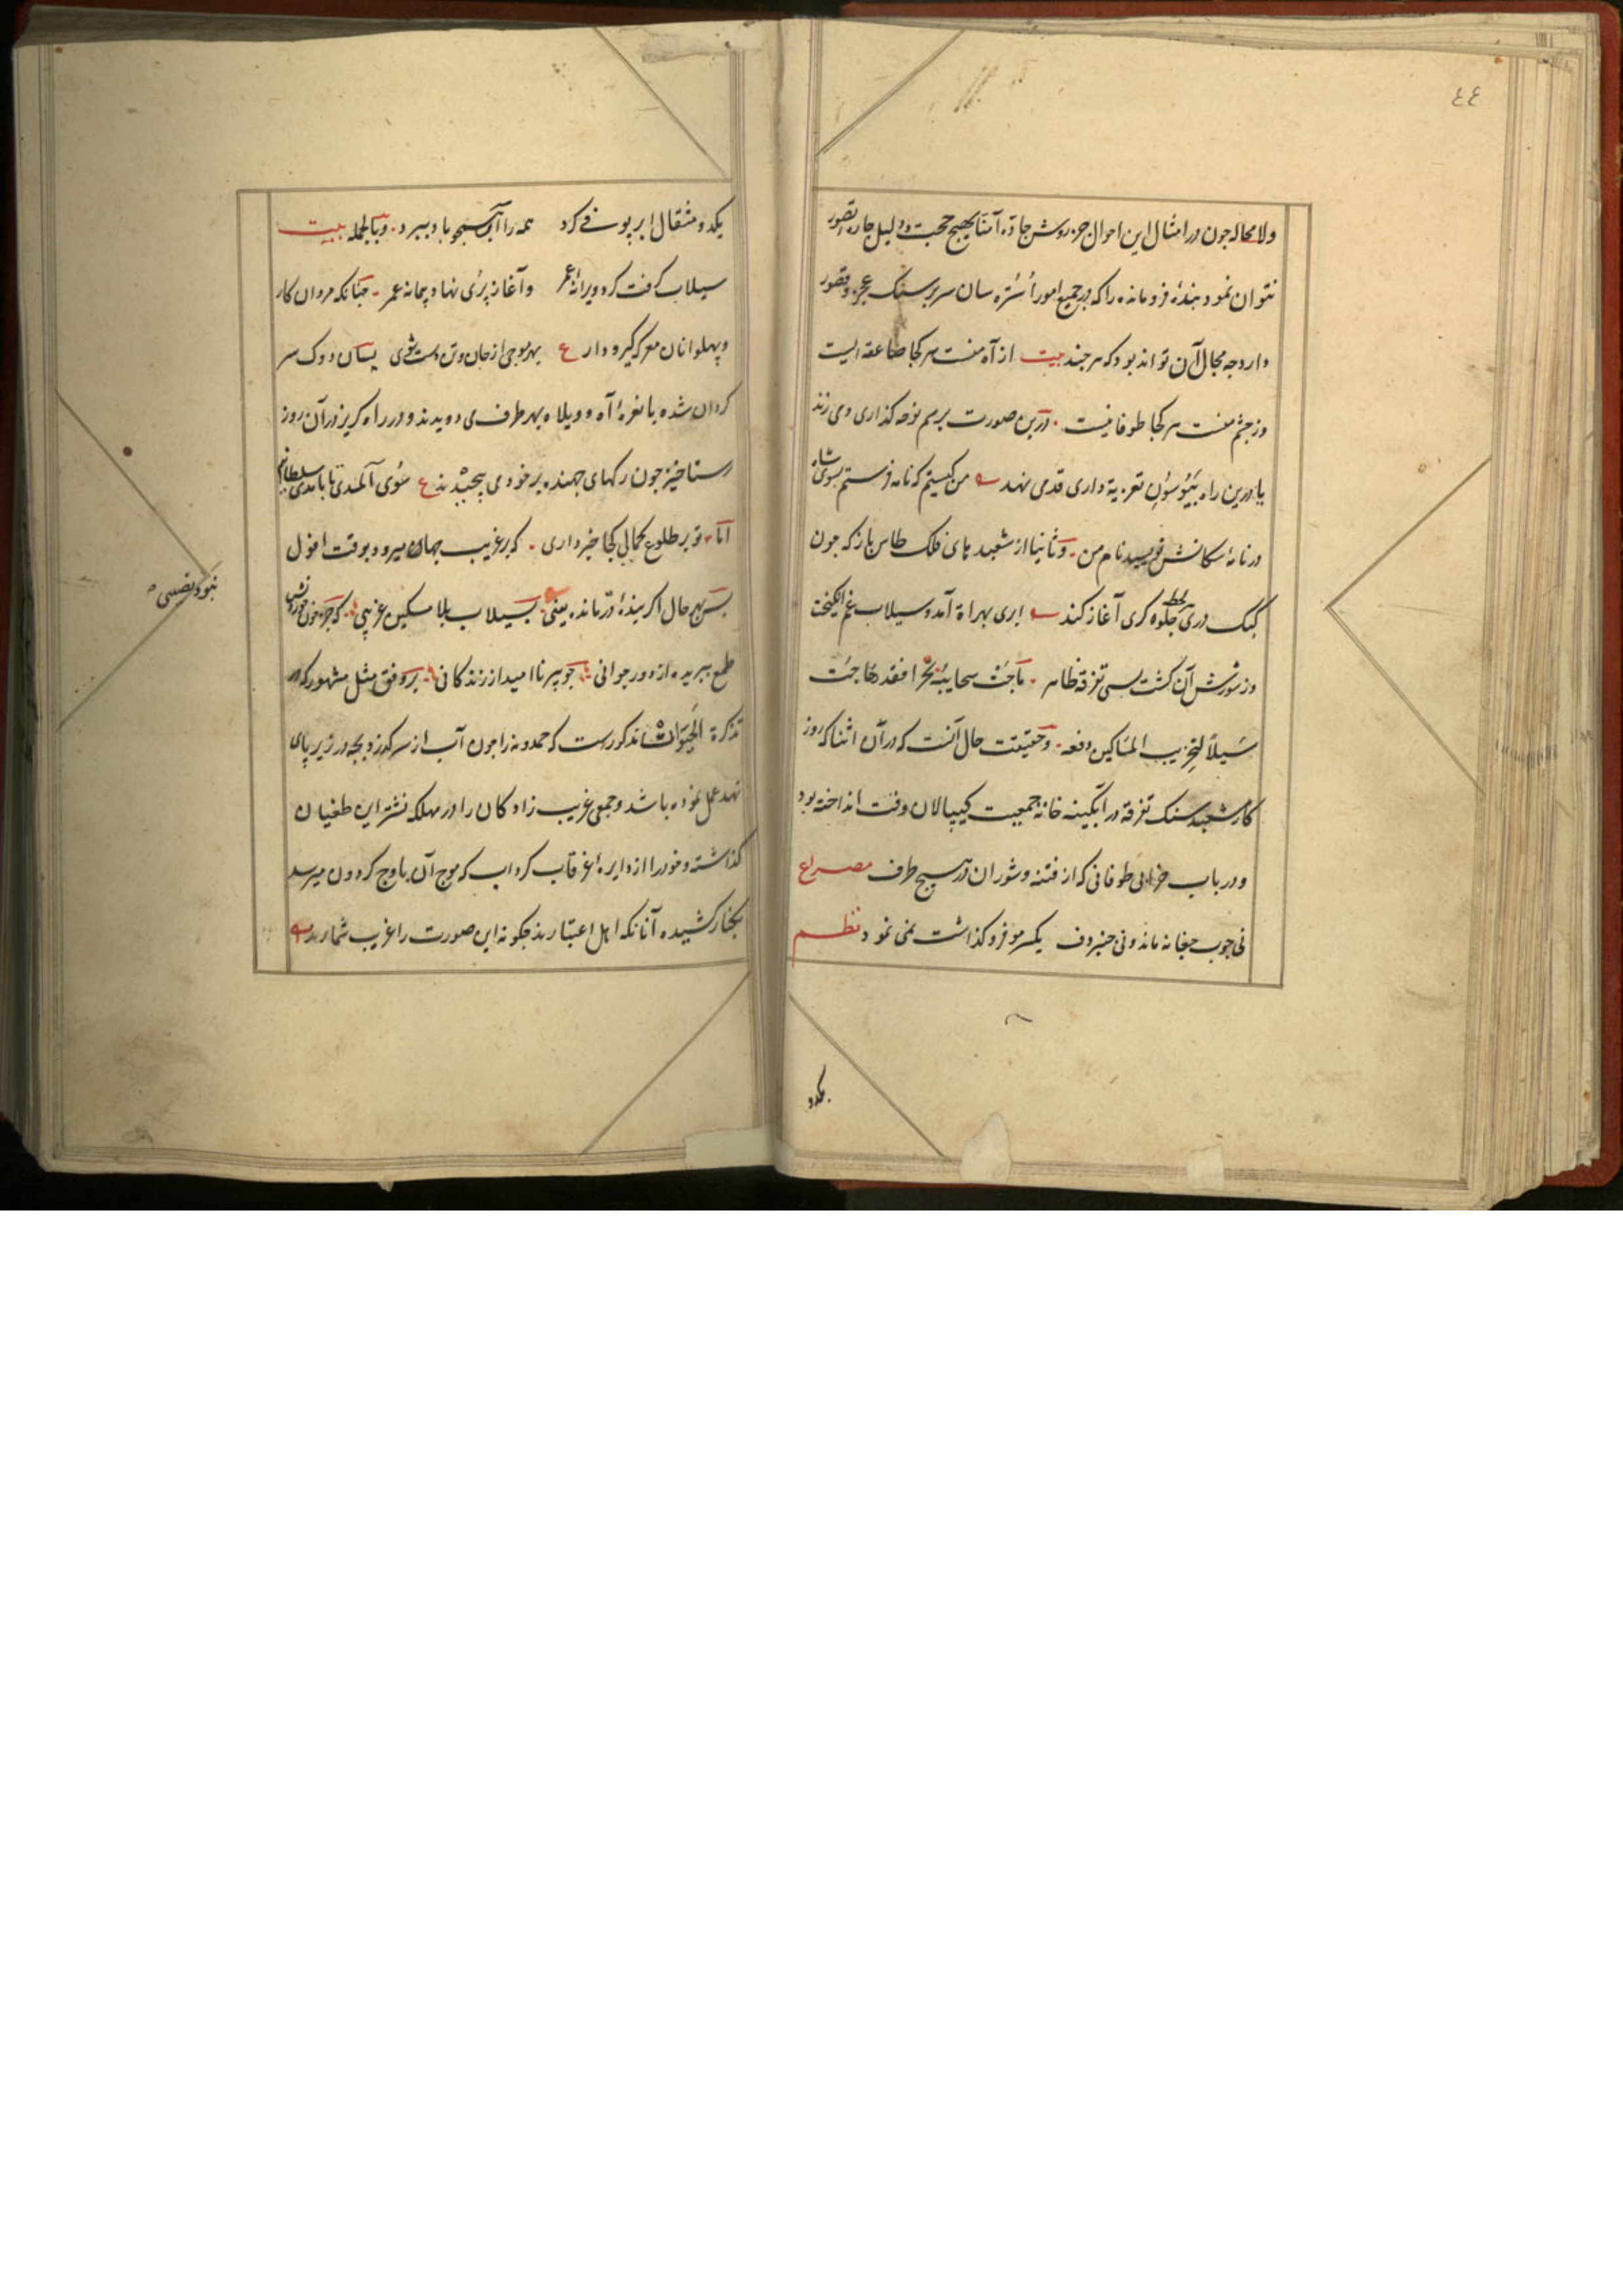 ٤٤
ولا محاله چون در امثال این احوال جز روش جاده آمنا بهیچ حجت و دلیل چاره تصور
نتوان نمود بنده فرومانده را که در جمیع امور اُشتره سان سر بر سنک عجز و قصور
دارد چه مجال آن تواند بود که هر چند بیت از آه منست هر کجا صاعقه ایست
وز چشم منست هر کجا طوفانیست . درین صورت برسم نوحه کذاری دمی زند
یا درین راه تعزیة داری قدمی نهد من کیستم که نامه فرستم بسوی شاه
در نامهٔ سکانش نویسید نام من . وثانیا از شعبد های فلک طاس باز که چون
کبک دری لحظه جلوه کری آغاز کند ابری بهراة آمد و سیلاب غم انکیخت
وز شورش آن کشت بسی تفرقه ظاهر .
سیلاً لتخریب المساکین دفعه . وحقیقت حال آنست که در آن اثنا که روز
کار شعبد سنک تفرقه در آبکینه خانه جمعیت وقت انداخته بود
ودر باب خرابی طوفانی که از فتنه و شور ان در هیچ طرف مصراع
نی چوب چغانه ماند و نی چنبر دف یکسر مو فرو کذاشت نمی نمود نظم
یکدو
یکدو مثقال ابر پوسفی کرد همه را آب سبحو باد ببرد . وبالجمله بیت
سیلاب کرفت کرد ویرانهٔ عمر وآغاز پرُی نهاد پیمانه عمر . چنانکه مردان کار
وپهلوانان معرکه کیرو دار ع بهر موجی از جان و تن دست شوی بسان دوک سر
کردان شده با نعرهٔ آه و ویلاه بهر طرف می دویدند و در راه کریز در آن روز
رستاخیز چون رکهای جهنده بر خود می پیچیدند ع
امّا . تو بر طلوع کمالی کجا خبر داری . که بر غریب جهان میرود بوقت افول
بس بهر حال اکر بندهٔ درمانده یعنی . بسیلاب بلا مسکین غریبی . که جز خون خوردنش
نبود نصیبی
طمع ببریده از دور جوانی چو پیر نا امید از زندکانی . بر وفق مثل مشهور که در
تذکرة الحیوانات مذکورست که حمدونه را چون آب از سر کذرد بچه در زیر پای
نهد عمل نموده باشد وجمعی غریب زادکان را در مهلکه این طغیان
کذاشته وخود را از دایرهٔ غرقاب کرداب که موج آن باوج کردون میرسد
بکنار کشیده آنانکه اهل اعتبارند چکونه این صورت را غریب شمارند